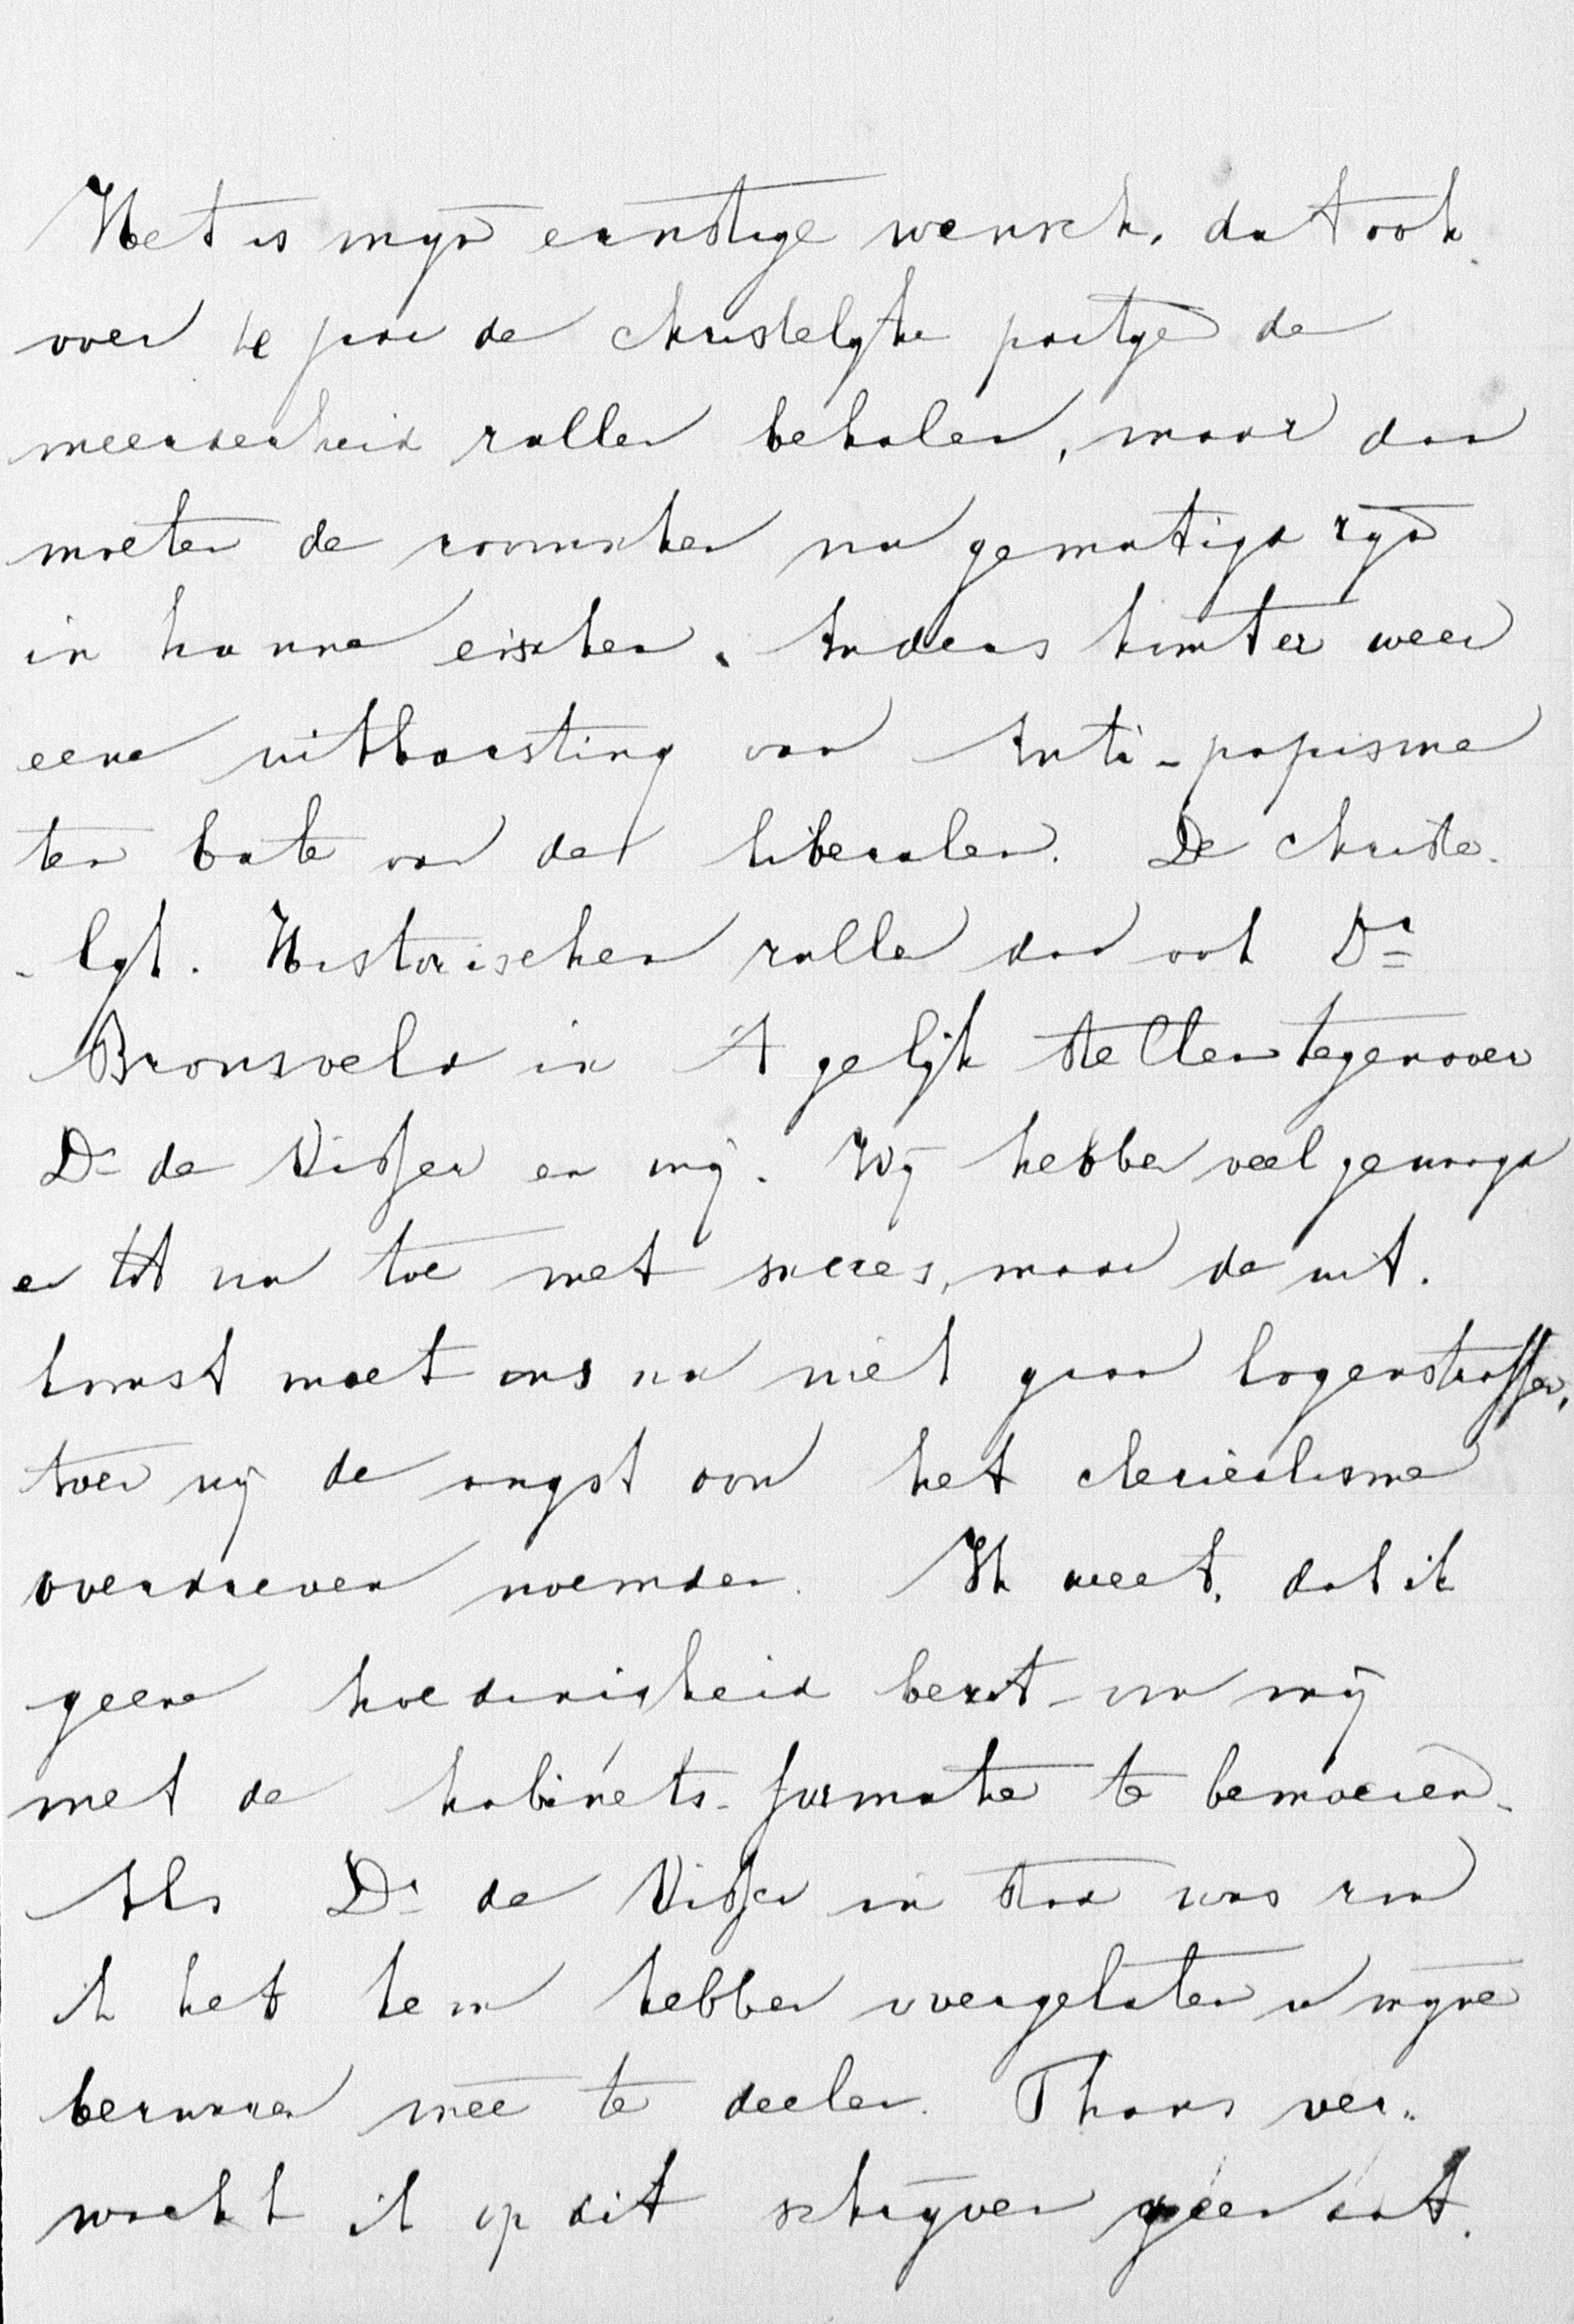 Het is mijn ernstige wensch, dat ook
over 4 jaar de christelijke partijen de
meerderheid zullen behalen, maar dan
moeten de roomschen nu gematigd zijn
in hunne eischen. Anders komt er weer
eene uitbarsting van Anti-papisme
ten bate van de liberalen. De christe-
-lijk. Historischen zullen dan ook Dr
Bronsveld in 't gelijk stellen tegenover
Dr de Visser en mij. Wij hebben veel gewaagd
en tot nu toe met succes, maar de uit-
komst moet ons nu niet gaan logenstraffen,
toen wij de angst voor het clericalisme
overdreven noemden. Ik weet, dat ik
geene hoedanigheid bezit om mij
met de kabinets-formatie te bemoeien.
Als Dr de Visser in stad was zou
ik het hem hebben overgelaten u mijne
bezwaren mee te deelen. Thans ver-
wacht ik op dit schrijven géén ant.